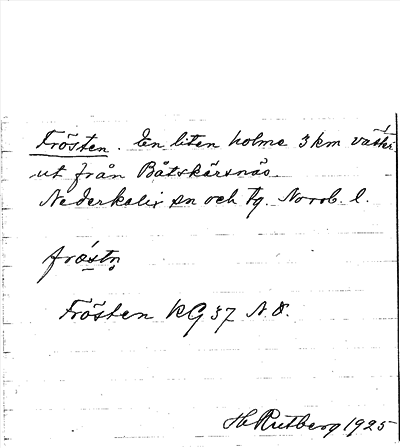 Frösten. En liten holme 3 km
ut från Båtskärsnäs
Nederkalix sn och tg. Norrb. l.
Frösten KG 37 N.O.
H Rutberg 1925